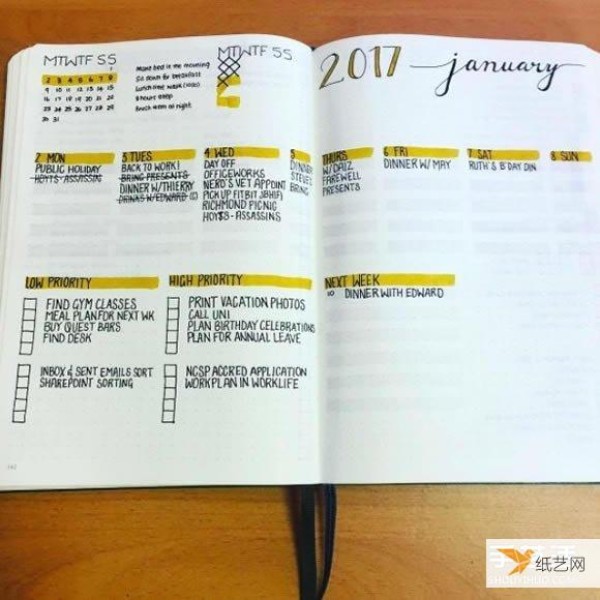 MTWTFSS
1
2 3 4 5 6 7 8
9 10 11 12 13 14 15
16 17 18 19 20 21 22
23 24 25 26 27 28 29
30 31
MTWTF SS
Make bed in the morning
Sit down for breakfast
Lunch time walk (1000)
8 hours sleep
Brush teeth at night
2017 january
2 MON
PUBLIC HOLIDAY
HOYTS - ASSASSINS
3 TUES
BACK TO WORK!
BRING PRESENTS
DINNER W/THIERRY
DRINKS W/EDWARD
4 WED
DAY OFF
OFFICEWORKS
NERO'S VET APPOINT
PICK UP FITBIT JBHIFI
RICHMOND PICNIC
HOYTS - ASSASSINS
5 THURS
DINNER W/DAIZ
STEVE FAREWELL
BRING PRESENTS
6 FRI
DINNER W/ MAY
7 SAT
RUTH'S B'DAY DIN
8 SUN
LOW PRIORITY
FIND GYM CLASSES
MEAL PLAN FOR NEXT WK
BUY QUEST BARS
FIND DESK
INBOX & SENT EMAILS SORT
SHAREPOINT SORTING
HIGH PRIORITY
PRINT VACATION PHOTOS
CALL UNI
PLAN BIRTHDAY CELEBRATIONS
PLAN FOR ANNUAL LEAVE
NCSP ACCRED APPLICATION
WORKPLAN IN WORKLIFE
NEXT WEEK
10 DINNER WITH EDWARD
纸艺网